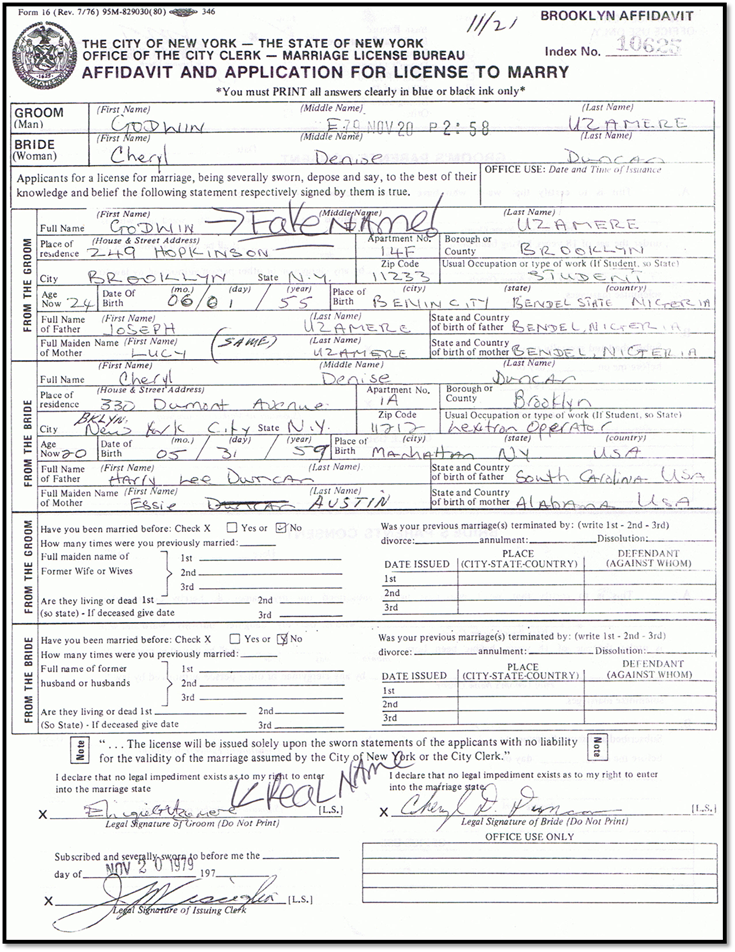 Form 16 (Rev. 7/76) 95M-829030(80) 346
11/21
BROOKLYN AFFIDAVIT
Index No. 10625
THE CITY OF NEW YORK — THE STATE OF NEW YORK
OFFICE OF THE CITY CLERK — MARRIAGE LICENSE BUREAU
AFFIDAVIT AND APPLICATION FOR LICENSE TO MARRY
*You must PRINT all answers clearly in blue or black ink only*
GROOM (First Name) (Middle Name) (Last Name)
(Man) GODWIN E 79 NOV 20 P 2:58 UZAMERE
BRIDE (First Name) (Middle Name) (Last Name)
(Woman) Cheryl Denise Duncan
Applicants for a license for marriage, being severally sworn, depose and say, to the best of their
knowledge and belief the following statement respectively signed by them is true.
OFFICE USE: Date and Time of Issuance
FROM THE GROOM
(First Name) (Middle Name) (Last Name)
Full Name GODWIN → Fake NAME! UZAMERE
Place of residence (House & Street Address) 249 HOPKINSON Apartment No. 14F Borough or County BROOKLYN
City BROOKLYN State N.Y. Zip Code 11233 Usual Occupation or type of work (If Student, so State) STUDENT
Age Now 24 Date Of Birth (mo.) 06 / (day) 01 / (year) 55 Place of Birth (city) BENIN CITY (state) BENDEL STATE (country) NIGERIA
Full Name of Father (First Name) JOSEPH (Last Name) UZAMERE State and Country of birth of father BENDEL, NIGERIA
Full Maiden Name of Mother (First Name) LUCY (SAME) (Last Name) UZAMERE State and Country of birth of mother BENDEL, NIGERIA
FROM THE BRIDE
(First Name) (Middle Name) (Last Name)
Full Name Cheryl Denise Duncan
Place of residence (House & Street Address) 330 Dumont Avenue Apartment No. 1A Borough or County Brooklyn
City BKLYN. New York City State N.Y. Zip Code 11212 Usual Occupation or type of work (If Student, so State) Lextron Operator
Age Now 20 Date Of Birth (mo.) 05 / (day) 31 / (year) 59 Place of Birth (city) Manhattan (state) NY (country) USA
Full Name of Father (First Name) Harry Lee Duncan (Last Name) State and Country of birth of father South Carolina USA
Full Maiden Name of Mother (First Name) Essie Duncan (Last Name) AUSTIN State and Country of birth of mother Alabama USA
FROM THE GROOM
Have you been married before: Check X Yes or No
How many times were you previously married:
Full maiden name of 1st
Former Wife or Wives 2nd
3rd
Are they living or dead 1st 2nd
(so state) - If deceased give date 3rd
Was your previous marriage(s) terminated by: (write 1st - 2nd - 3rd)
divorce: annulment: Dissolution:
DATE ISSUED PLACE (CITY-STATE-COUNTRY) DEFENDANT (AGAINST WHOM)
1st
2nd
3rd
FROM THE BRIDE
Have you been married before: Check X Yes or No
How many times were you previously married:
Full name of former 1st
husband or husbands 2nd
3rd
Are they living or dead 1st 2nd
(So State) - If deceased give date 3rd
Was your previous marriage(s) terminated by: (write 1st - 2nd - 3rd)
divorce: annulment: Dissolution:
DATE ISSUED PLACE (CITY-STATE-COUNTRY) DEFENDANT (AGAINST WHOM)
1st
2nd
3rd
Note "... The license will be issued solely upon the sworn statements of the applicants with no liability Note
for the validity of the marriage assumed by the City of New York or the City Clerk."
I declare that no legal impediment exists as to my right to enter
into the marriage state
Real NAME
X [L.S.]
Legal Signature of Groom (Do Not Print)
I declare that no legal impediment exists as to my right to enter
into the marriage state
X Cheryl D. Duncan [L.S.]
Legal Signature of Bride (Do Not Print)
Subscribed and severally sworn to before me the
day of NOV 20 1979 197
X [L.S.]
Legal Signature of Issuing Clerk
OFFICE USE ONLY